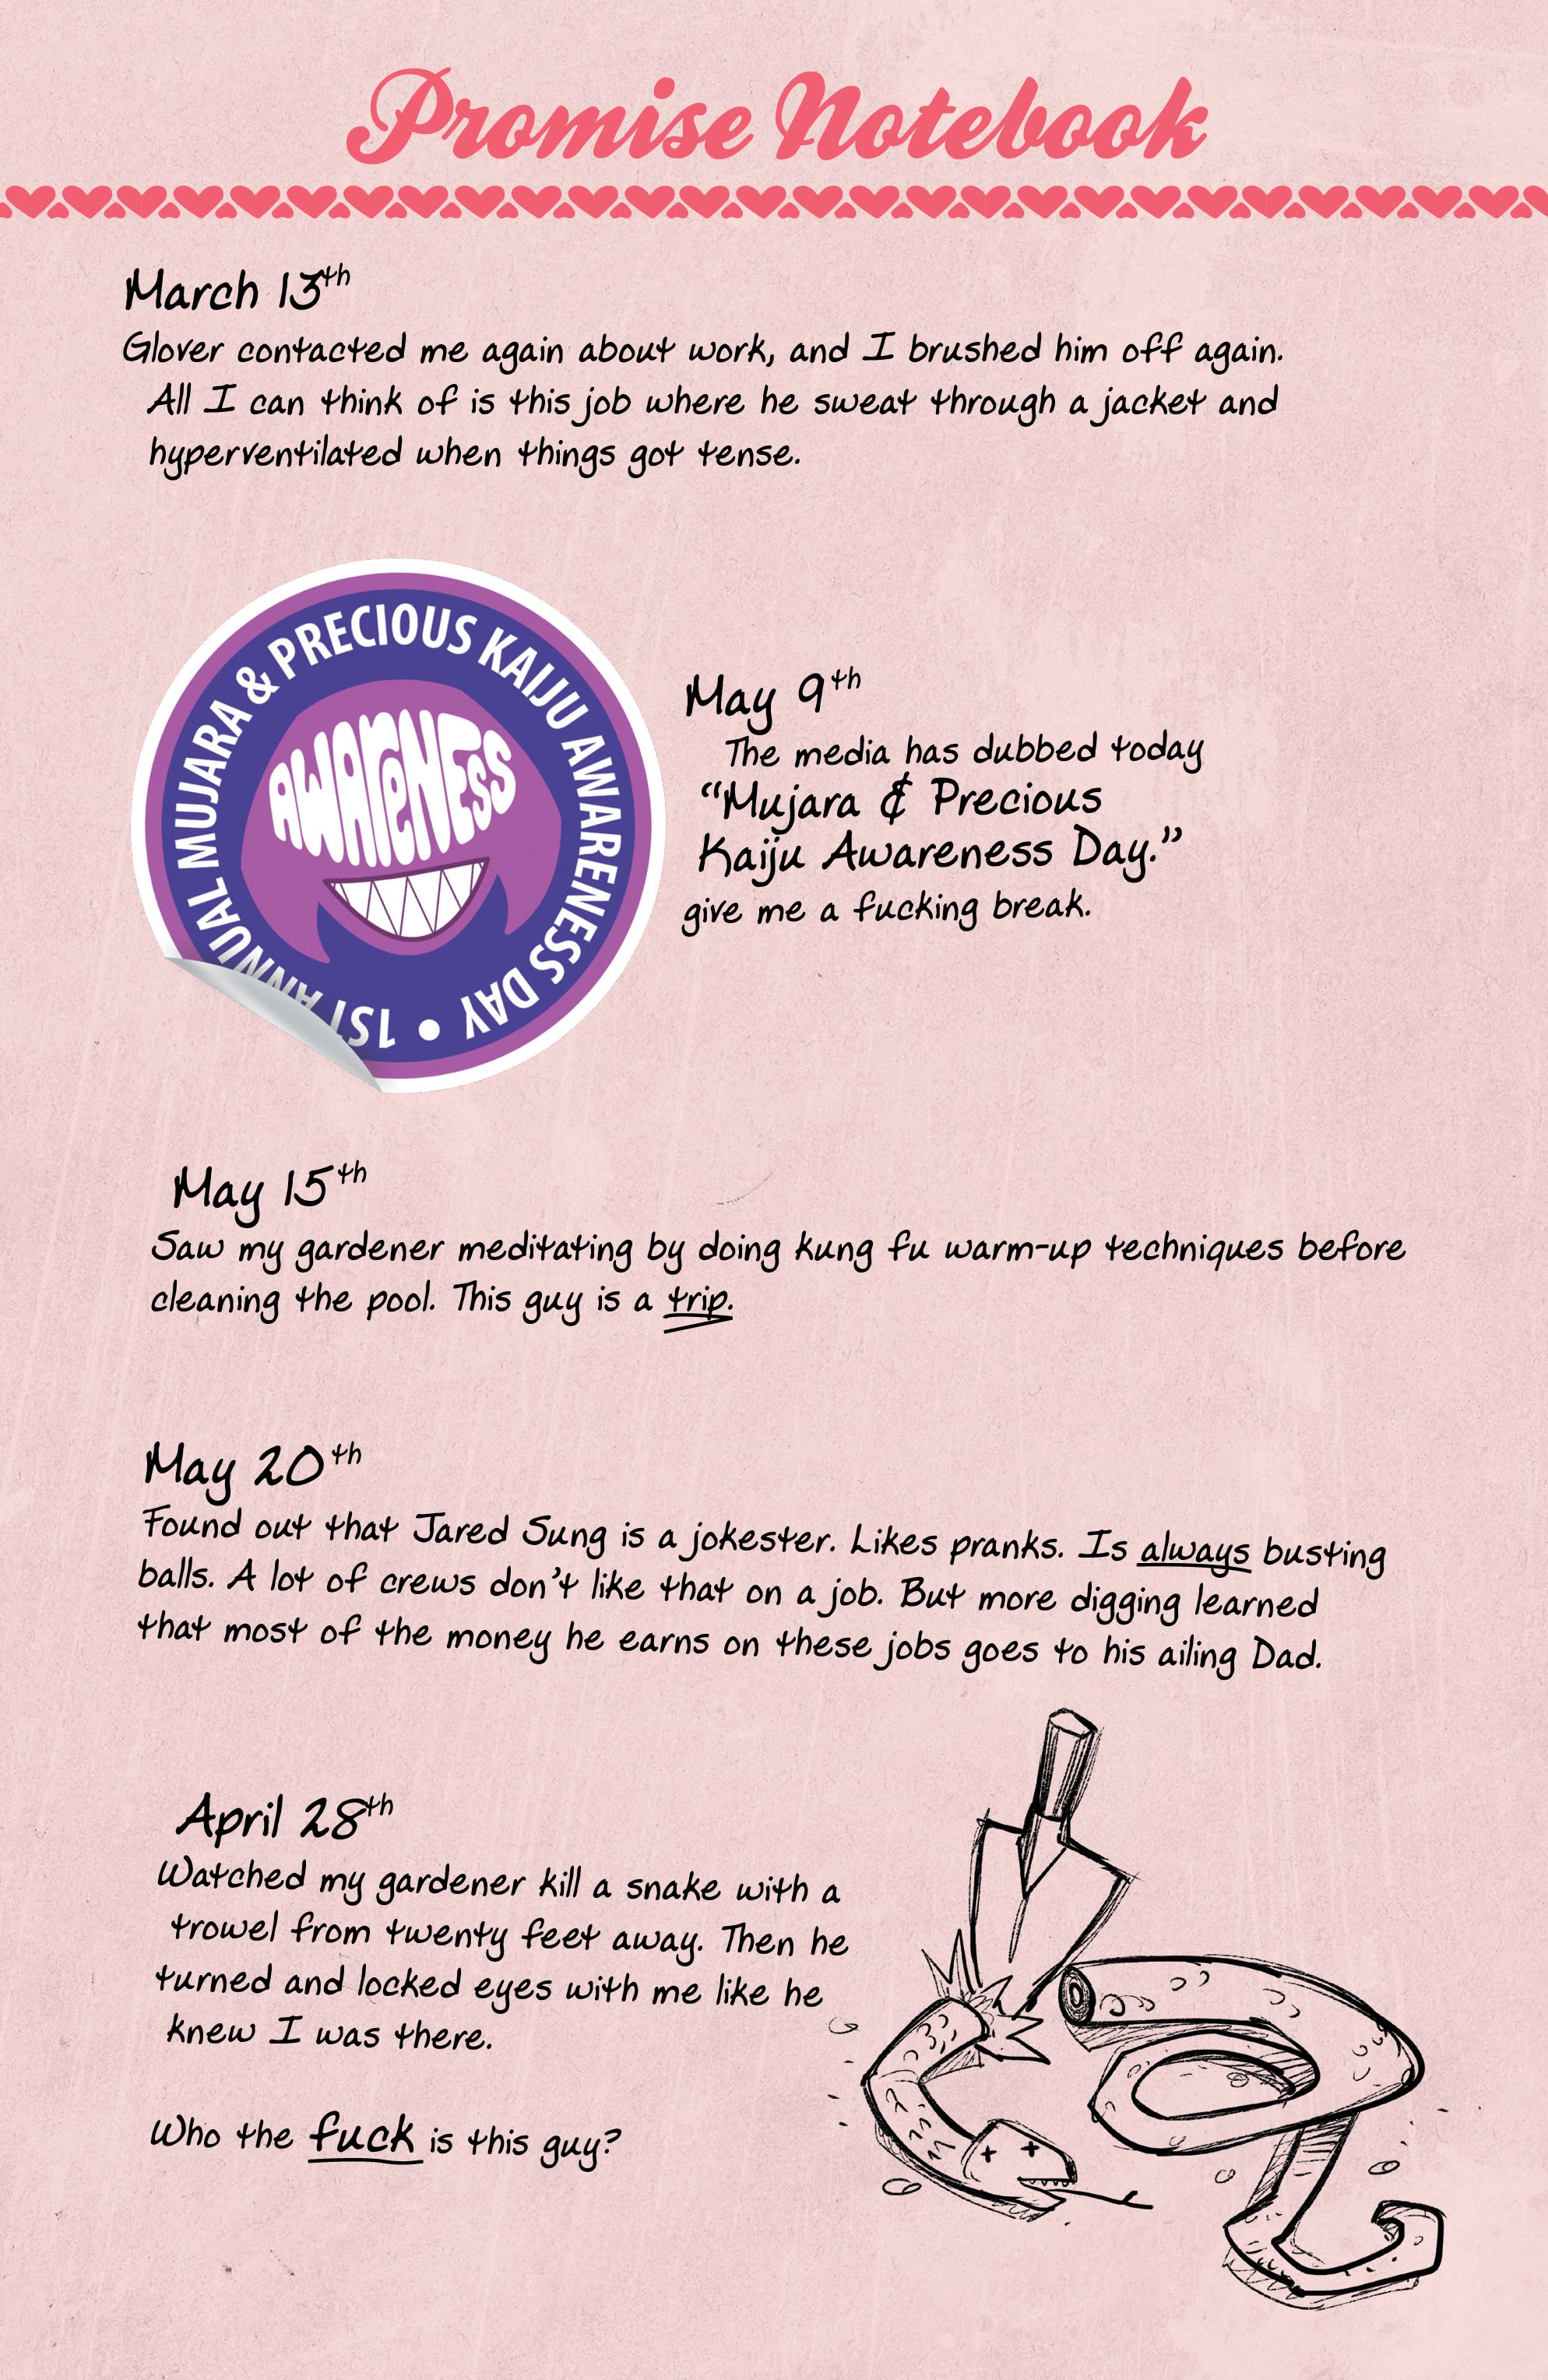 Promise Notebook
March 13th
Glover contacted me again about work, and I brushed him off again.
All I can think of is this job where he sweat through a jacket and
hyperventilated when things got tense.
1ST ANNUAL MUJARA & PRECIOUS KAIJU AWARENESS DAY •
AWARENESS
May 9th
The media has dubbed today
“Mujara & Precious
Kaiju Awareness Day.”
give me a fucking break.
May 15th
Saw my gardener meditating by doing kung fu warm-up techniques before
cleaning the pool. This guy is a trip.
May 20th
Found out that Jared Sung is a jokester. Likes pranks. Is always busting
balls. A lot of crews don't like that on a job. But more digging learned
that most of the money he earns on these jobs goes to his ailing Dad.
April 28th
Watched my gardener kill a snake with a
trowel from twenty feet away. Then he
turned and locked eyes with me like he
knew I was there.
Who the fuck is this guy?